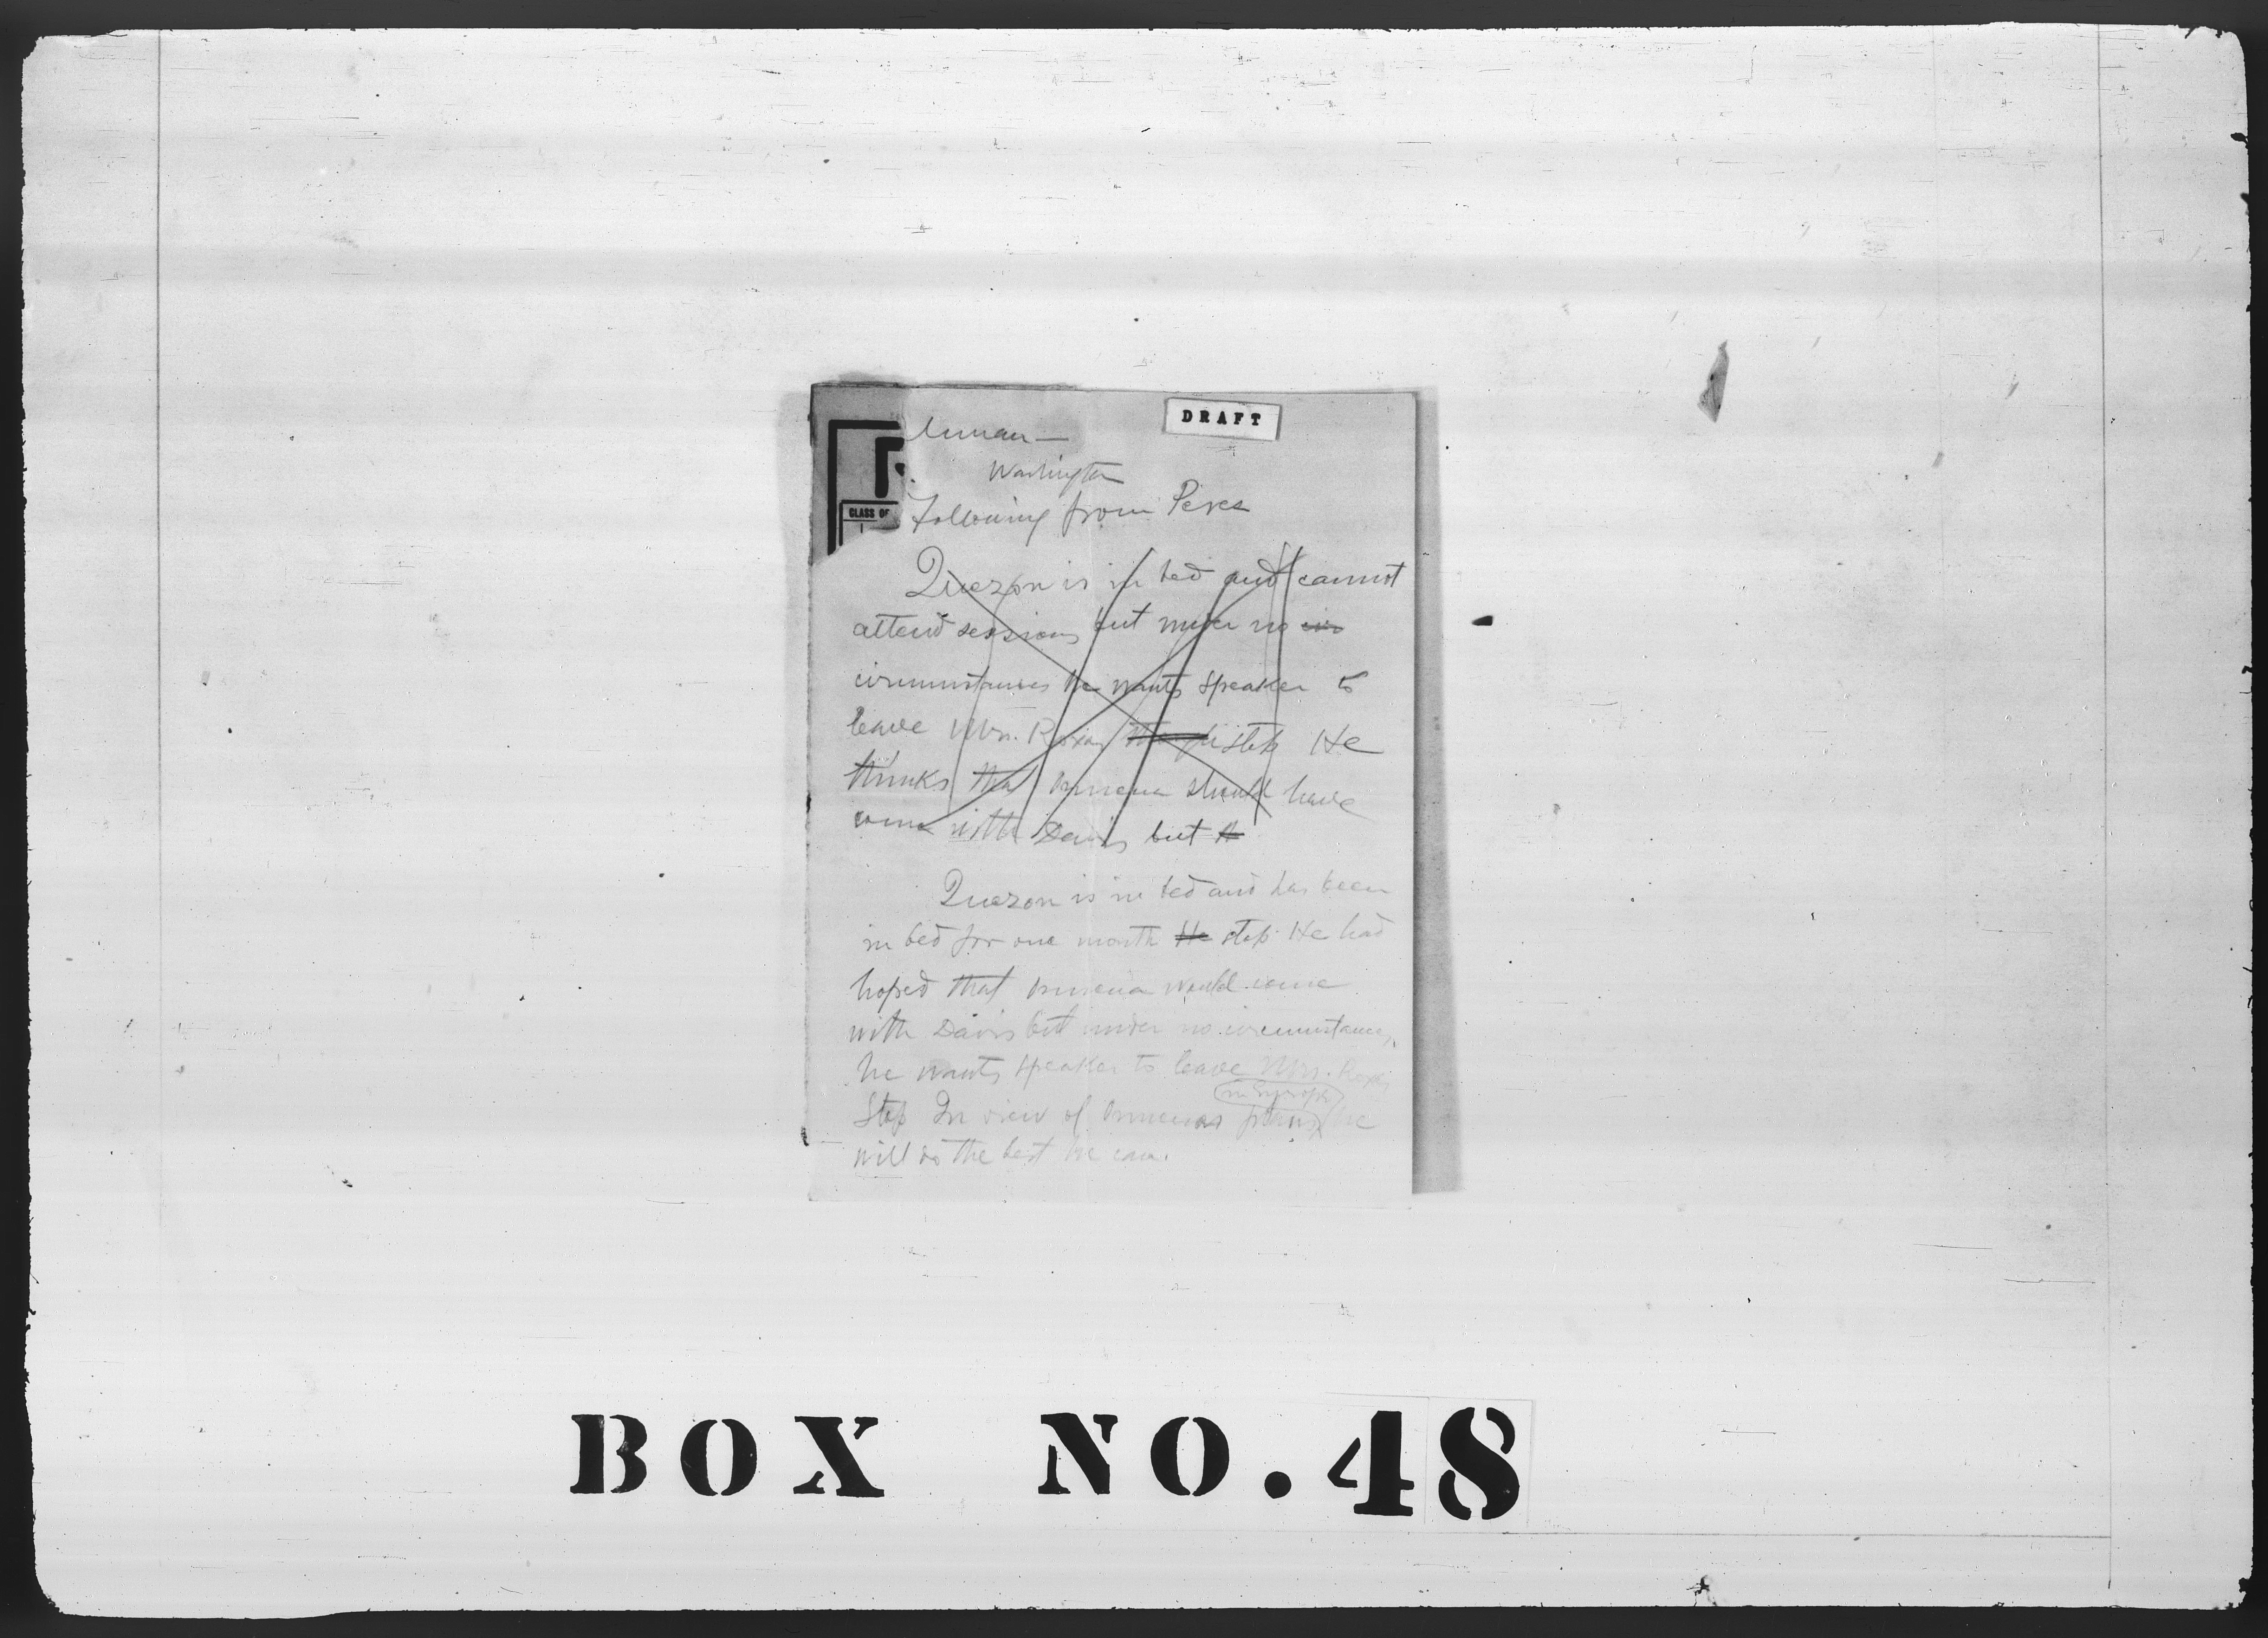 DRAFT
Washington
CLASS OF
Following from Peres
Quezon is in bed and cannot
attend sessions but under no cir
circumstances he wants speaker to
leave Mrs. Roxas stop He
thinks that Osmena should have
come with Davis but
Quezon is in bed and has been
in bed for one month He stop He had
hoped that Osmena would come
with Davis but under no circumstances
he wants speaker to leave Mrs. Roxas
in Europe
Stop In view of Osmenas plans he
will do the best he can.
BOX NO. 48